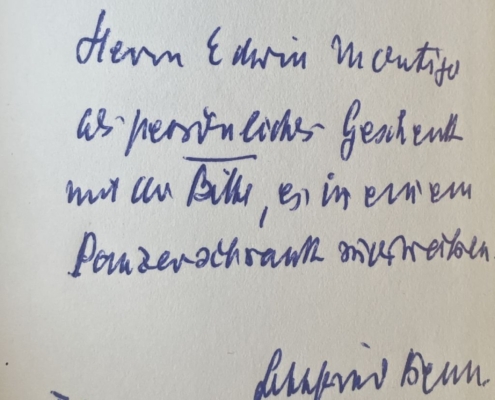 Herrn Edwin Montijo
als persönliches Geschenk
mit der Bitte, es in einem
Panzerschrank
Gottfried Benn.